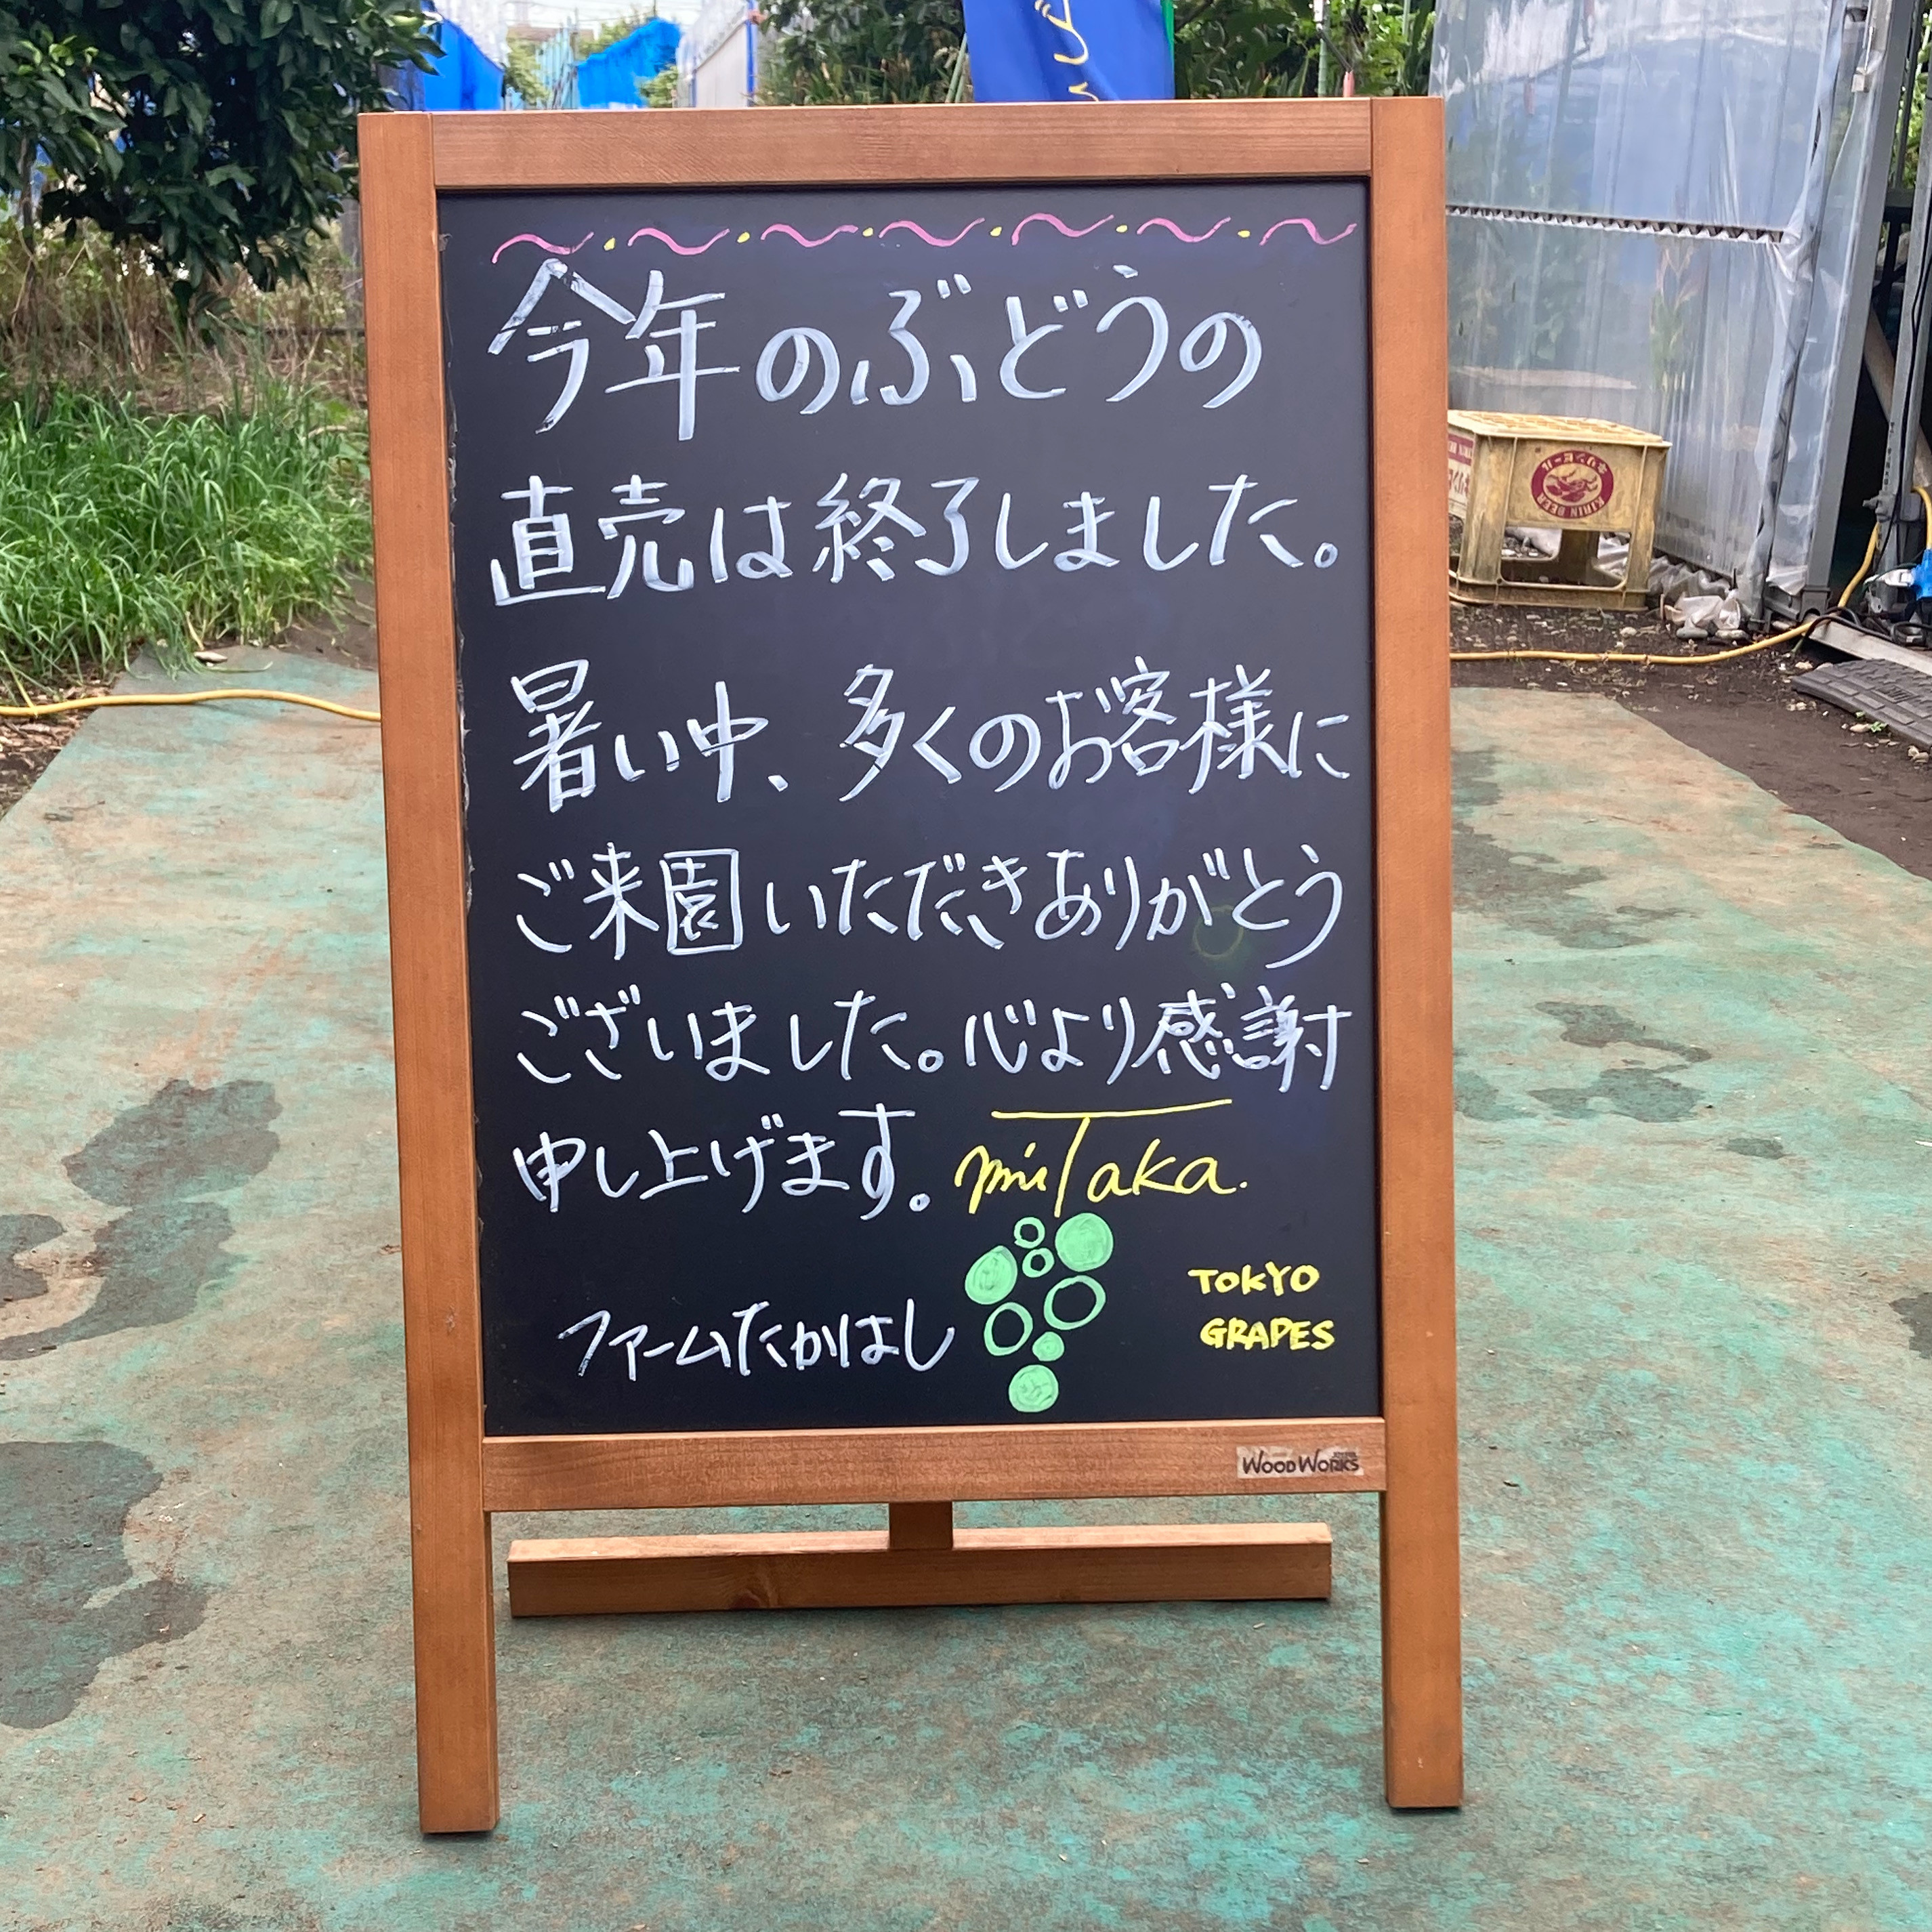 今年のぶどうの
直売は終了しました。
暑い中、多くのお客様に
ご来園いただきありがとう
ございました。心より感謝
申し上げます。
miTaka.
TOKYO
GRAPES
ファームたかはし
WOODWORKS
キリンビール
KIRIN BEER